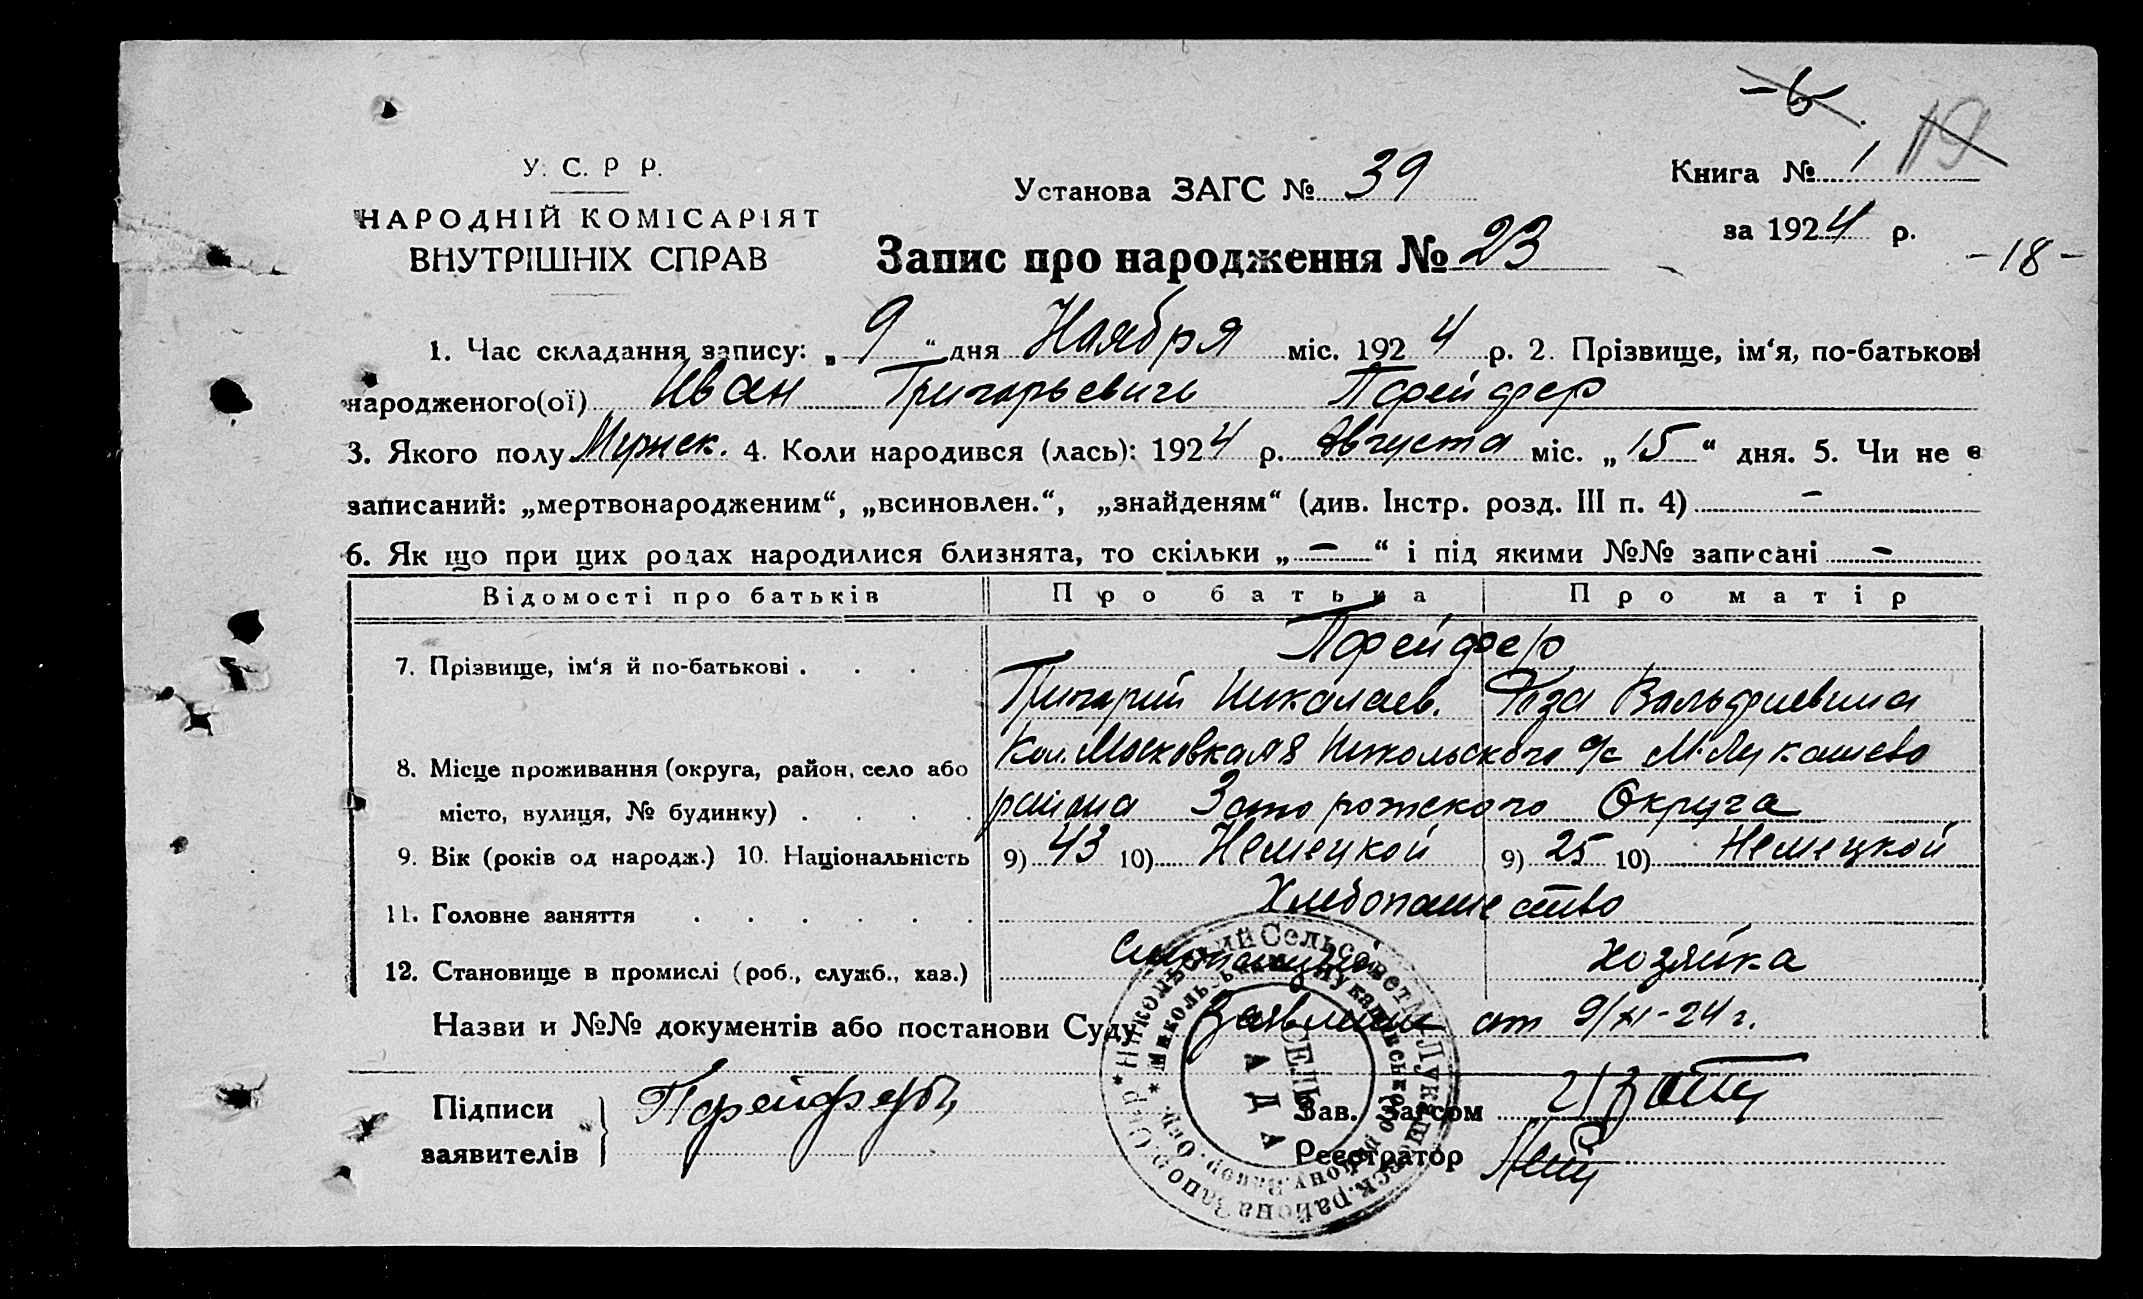 -6-
19
У. С. Р Р.
НАРОДНІЙ КОМІСАРІЯТ
ВНУТРІШНІХ СПРАВ
Установа ЗАГС № 39
Книга № 1
за 1924 р.
-18-
Запис про народження № 23
1. Час складання запису: „ 9 “ дня Ноября міс. 1924 р. 2. Прізвище, ім‘я, по-батькові
народженого(ої) Иван Григорьевичь Пфейфер
3. Якого полу Мужск. 4. Коли народився (лась): 1924 р. Августа міс. „ 15 “ дня. 5. Чи не є
записаний: „мертвонародженим“, „всиновлен.“, „знайденям“ (див. Інстр. розд. III п. 4) -
6. Як що при цих родах народилися близнята, то скільки „ - “ і під якими №№ записані -
Відомості про батьків Про батька Про матір
Пфейфер
7. Прізвище, ім‘я й по-батькові . . . .
Григорий Николаев. Роза
8. Місце проживання (округа, район, село або Кол. Московка Никольского с/с М-Лукашево
місто, вулиця, № будинку) . . . . района Запорожского Округа
9. Вік (років од народж.) 10. Національність 9) 43 10) Немецкой 9) 25 10) Немецкой
Хлебопашество
11. Головне заняття . . . . . .
12. Становище в промислі (роб., служб., хаз.) хозяйка
Назви и №№ документів або постанови Суду Заявление от 9/XI-24 г.
Підписи
заявителів
Пфейферъ
Зав. Загсом
Реєстратор
Никольский Сельсовет М. Лукашевск. района Запор. Окр.
СЕЛЬ
РАДА